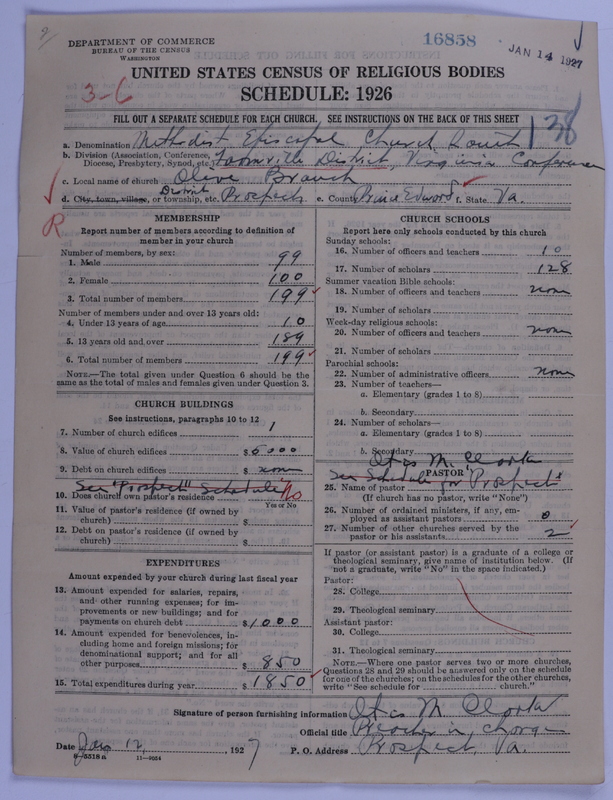 2
DEPARTMENT OF COMMERCE
BUREAU OF THE CENSUS
WASHINGTON
16858
JAN 14 1927
UNITED STATES CENSUS OF RELIGIOUS BODIES
3-6
SCHEDULE: 1926
FILL OUT A SEPARATE SCHEDULE FOR EACH CHURCH. SEE INSTRUCTIONS ON THE BACK OF THIS SHEET
138
a. Denomination Methodist Episcopal Church South
b. Division (Association, Conference, Diocese, Presbytery, Synod, etc.) Farmville District, Virginia Conference
c. Local name of church Olive Branch
d. City, town, village, or township, etc. District Prospect e. County Prince Edward f. State Va.
R
MEMBERSHIP
Report number of members according to definition of
member in your church
Number of members, by sex:
1. Male 99
2. Female 100
3. Total number of members 199
Number of members under and over 13 years old:
4. Under 13 years of age 10
5. 13 years old and over 189
6. Total number of members 199
NOTE.—The total given under Question 6 should be the
same as the total of males and females given under Question 3.
CHURCH BUILDINGS
See instructions, paragraphs 10 to 12
7. Number of church edifices 1
8. Value of church edifices $ 5000
9. Debt on church edifices $ none
See "Prospect" Schedule
10. Does church own pastor's residence No
Yes or No
11. Value of pastor's residence (if owned by
church) $
12. Debt on pastor's residence (if owned by
church) $
EXPENDITURES
Amount expended by your church during last fiscal year
13. Amount expended for salaries, repairs,
and other running expenses; for im-
provements or new buildings; and for
payments on church debt $ 1000
14. Amount expended for benevolences, in-
cluding home and foreign missions; for
denominational support; and for all
other purposes $ 850
15. Total expenditures during year $ 1850
CHURCH SCHOOLS
Report here only schools conducted by this church
Sunday schools:
16. Number of officers and teachers 10
17. Number of scholars 128
Summer vacation Bible schools:
18. Number of officers and teachers none
19. Number of scholars
Week-day religious schools:
20. Number of officers and teachers none
21. Number of scholars
Parochial schools:
22. Number of administrative officers none
23. Number of teachers—
a. Elementary (grades 1 to 8)
b. Secondary
24. Number of scholars—
a. Elementary (grades 1 to 8)
b. Secondary
PASTOR
See Schedule for "Prospect"
25. Name of pastor
(If church has no pastor, write "None")
26. Number of ordained ministers, if any, em-
ployed as assistant pastors 0
27. Number of other churches served by the
pastor or his assistants 2
If pastor (or assistant pastor) is a graduate of a college or
theological seminary, give name of institution below. (If
not a graduate, write "No" in the space indicated.)
Pastor:
28. College
29. Theological seminary
Assistant pastor:
30. College
31. Theological seminary
NOTE.—Where one pastor serves two or more churches,
Questions 28 and 29 should be answered only on the schedule
for one of the churches; on the schedules for the other churches,
write "See schedule for church."
Signature of person furnishing information
Official title Preacher in charge
Date Jan 12, 1927
P. O. Address Prospect, Va.
8-5518a 11-9054